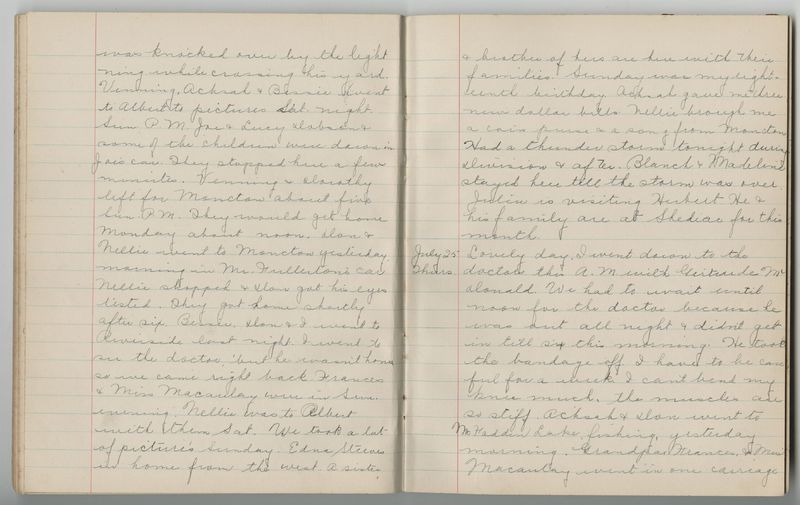 was knocked over by the light
ning while crossing his yard.
Venning, Achsah & Bessie went
to Albert to pictures Sat. night.
Sun P.M. Joe & Lucy Dobson &
some of the children were down in
Joe's car. They stopped here a few
minutes. Venning & Dorothy
left for Moncton about five
Sun. P.M. They would get home
Monday about noon. Don &
Nellie went to Moncton yesterday
morning in Mr. Fullerton's car
Nellie shopped & Don got his eyes
tested. They got home shortly
after six. Bessie, Don & I went to
Riverside last night. I went to
see the doctor, but he wasn't home
so we came right back. Frances
& Miss Macaulay were in Sun.
evening. Nellie was to Albert
with them Sat. We took a lot
of pictures Sunday. Edna Steeves
is home from the west. A sister
& brother of hers are here with their
families. Sunday was my eight-
eenth birthday. Achsah gave me three
new dollar bills. Nellie brough me
a coin purse & a song from Moncton
Had a thunder storm tonight during
Division & after. Blanch & Madeline
stayed here till the storm was over.
Julia is visiting Hubert. He &
his family are at Shediac for this
month.
July 25 Lovely day. I went down to the
Thurs doctors this A.M. with Gertrude Mc
Donald. We had to wait until
noon for the doctor because he
was out all night & didn't get
in till six this morning. He took
the bandage off. I have to be care
ful for a week. I can't bend my
knee much. The muscles are
so stiff. Achsah & Don went to
McFadden Lake, fishing, yesterday
morning. Grandpa, Frances, & Miss
Macaulay went in one carriage